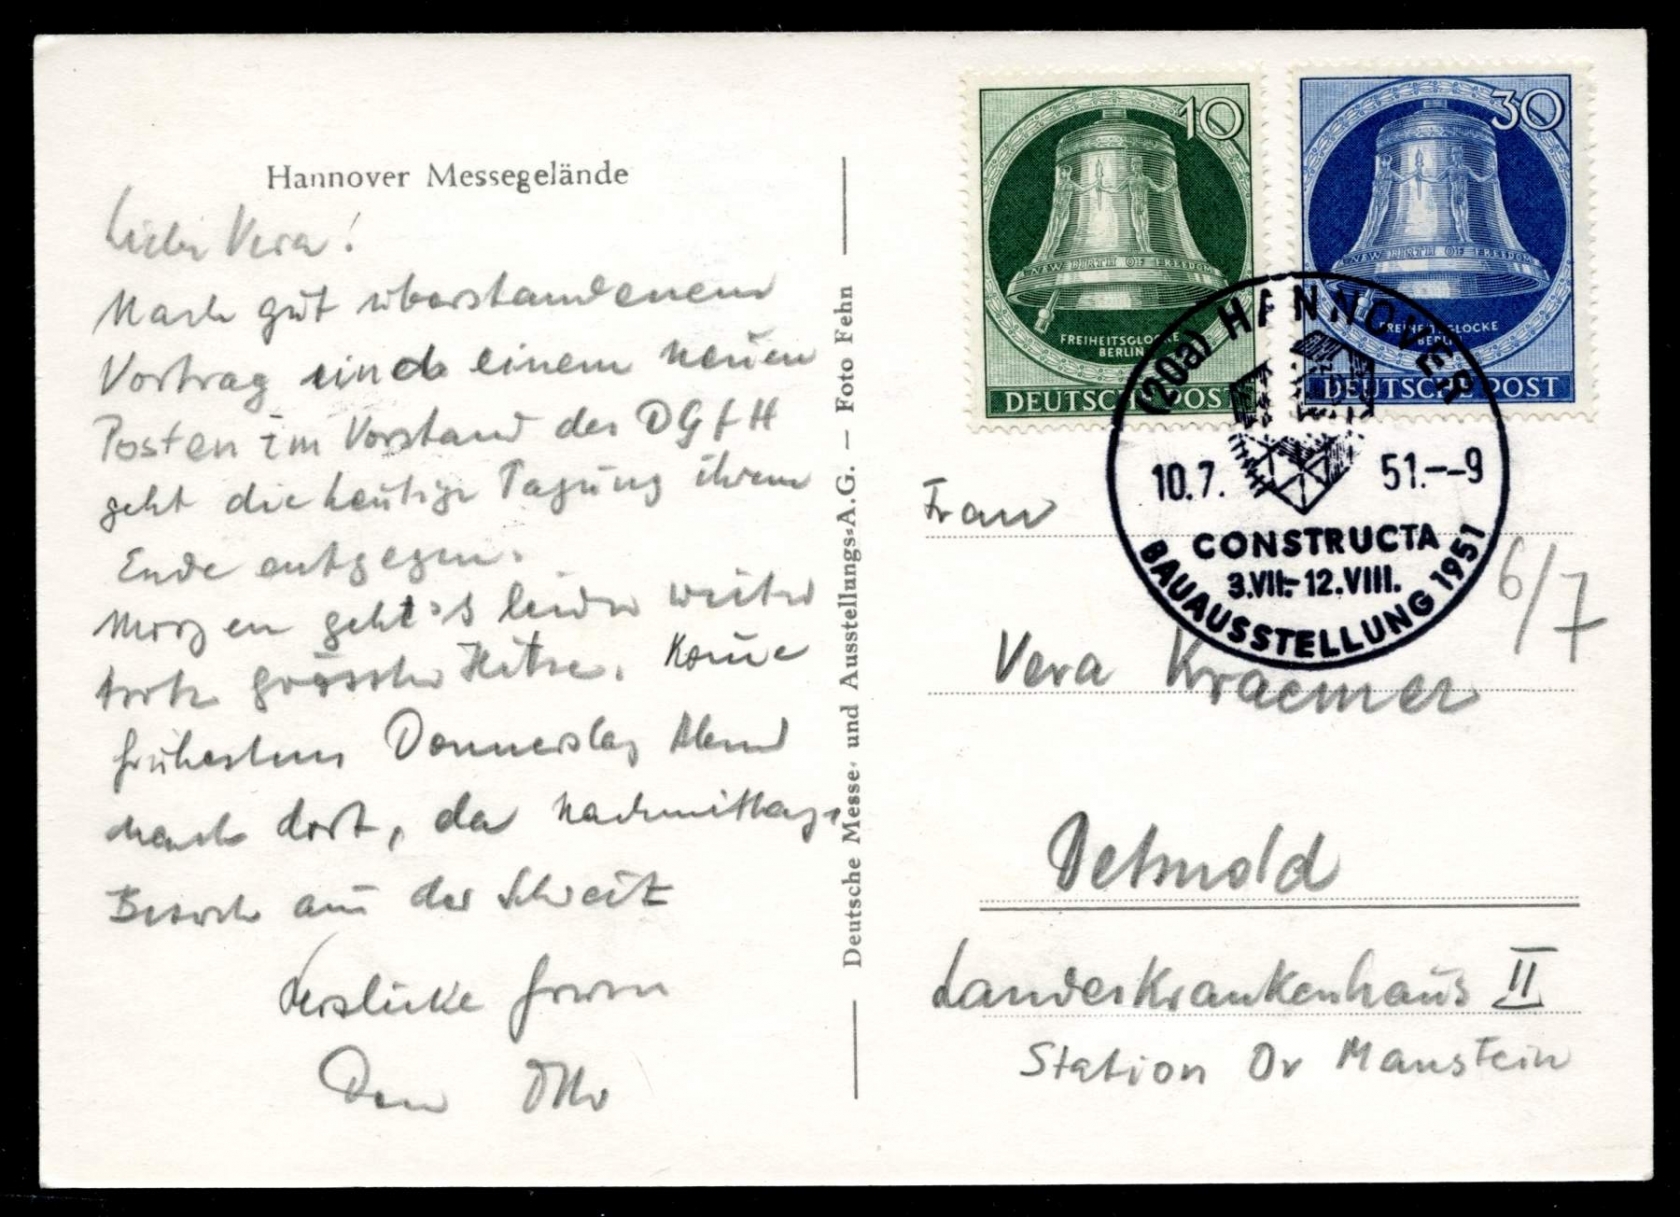 Hannover Messegelände
Liebe Vera!
Nach gut überstandenem
Vortrag und einem neuen
Posten im Vorstand der DGfH
geht die heutige Tagung ihrem
Ende entgegen.
Morgen geht's leider weiter
trotz grosser Hitze. Komme
frühestens Donnerstag Abend
nach dort, da nachmittags
Besuch aus der Schweiz
Herzliche
Dein Otto
Deutsche Messe- und Ausstellungs-A.G. — Foto Fehn
10
FREIHEITSGLOCKE
BERLIN
DEUTSCHE POST
30
FREIHEITSGLOCKE
BERLIN
DEUTSCHE POST
(20a) HANNOVER
10.7. 51.--9
CONSTRUCTA
3.VII.-12.VIII.
BAUAUSSTELLUNG 1951
6/7
Frau
Vera Kraemer
Detmold
Landeskrankenhaus II
Station Dr Manstein